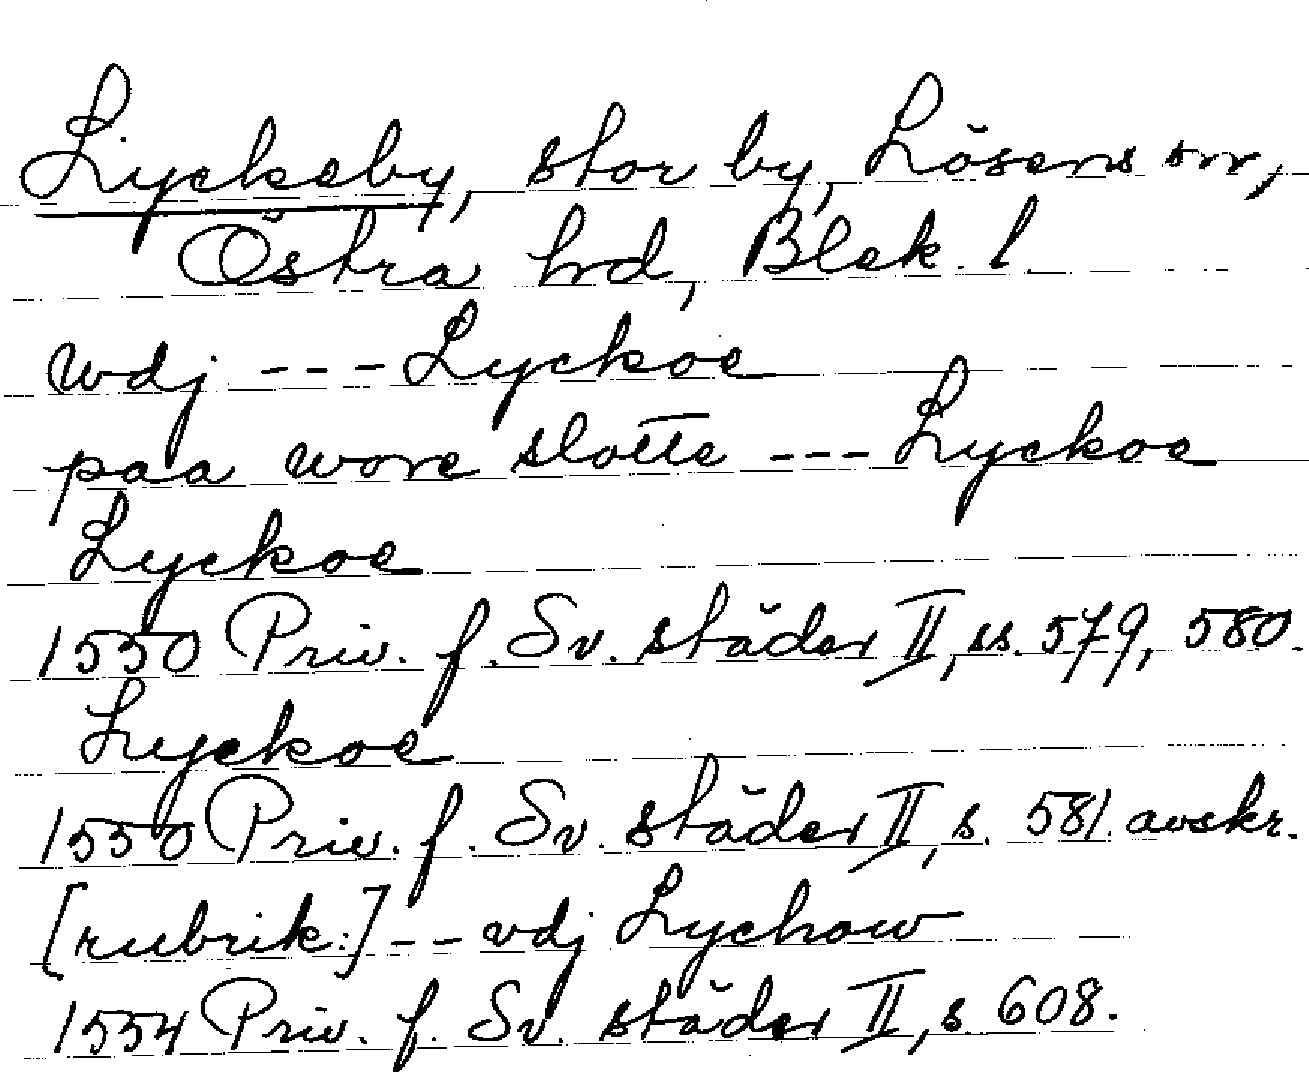 Lyckeby, stor by, Lösens sn,
Östra hrd, Blek. l.
wdj --- Lyckoe
paa wore slotte --- Lyckoe
Lyckoe
1550 Priv. f. Sv. städer II, ss. 579, 580.
Lyckoe
1550 Priv. f. Sv. städer II, s. 581. avskr.
[rubrik:] -- vdj Lychow
1554 Priv. f. Sv. städer II, s. 608.